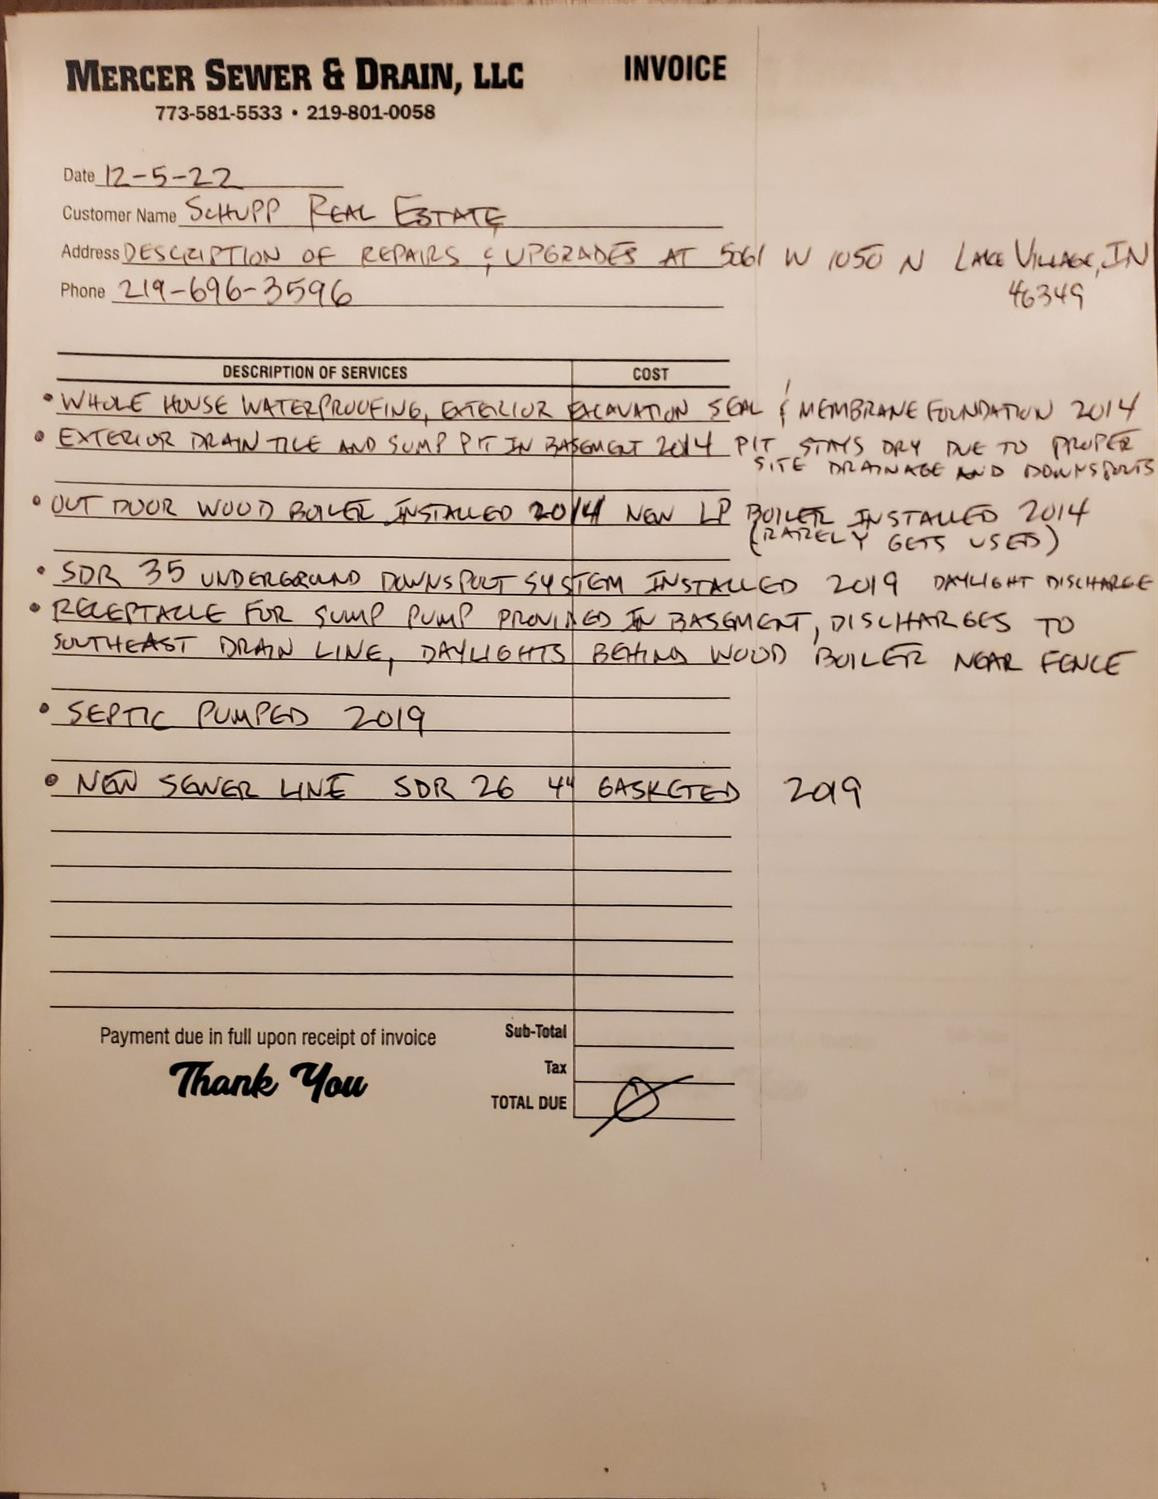 MERCER SEWER & DRAIN, LLC INVOICE
773-581-5533 • 219-801-0058
Date 12-5-22
Customer Name SCHUPP REAL ESTATE
Address DESCRIPTION OF REPAIRS & UPGRADES AT 5061 W 1050 N LAKE VILLAGE, IN
46349
Phone 219-696-3596
DESCRIPTION OF SERVICES COST
• WHOLE HOUSE WATERPROOFING, EXTERIOR EXCAVATION SEAL & MEMBRANE FOUNDATION 2014
• EXTERIOR DRAIN TILE AND SUMP PIT IN BASEMENT 2014 PIT STAYS DRY DUE TO PROPER
SITE DRAINAGE AND DOWNSPOUTS
• OUT DOOR WOOD BOILER INSTALLED 2014 NEW LP BOILER INSTALLED 2014
(RARELY GETS USED)
• SDR 35 UNDERGROUND DOWNSPOUT SYSTEM INSTALLED 2019 DAYLIGHT DISCHARGE
• RECEPTACLE FOR SUMP PUMP PROVIDED IN BASEMENT, DISCHARGES TO
SOUTHEAST DRAIN LINE, DAYLIGHTS BEHIND WOOD BOILER NEAR FENCE
• SEPTIC PUMPED 2019
• NEW SEWER LINE SDR 26 4" GASKETED 2019
Payment due in full upon receipt of invoice
Thank You
Sub-Total
Tax
TOTAL DUE